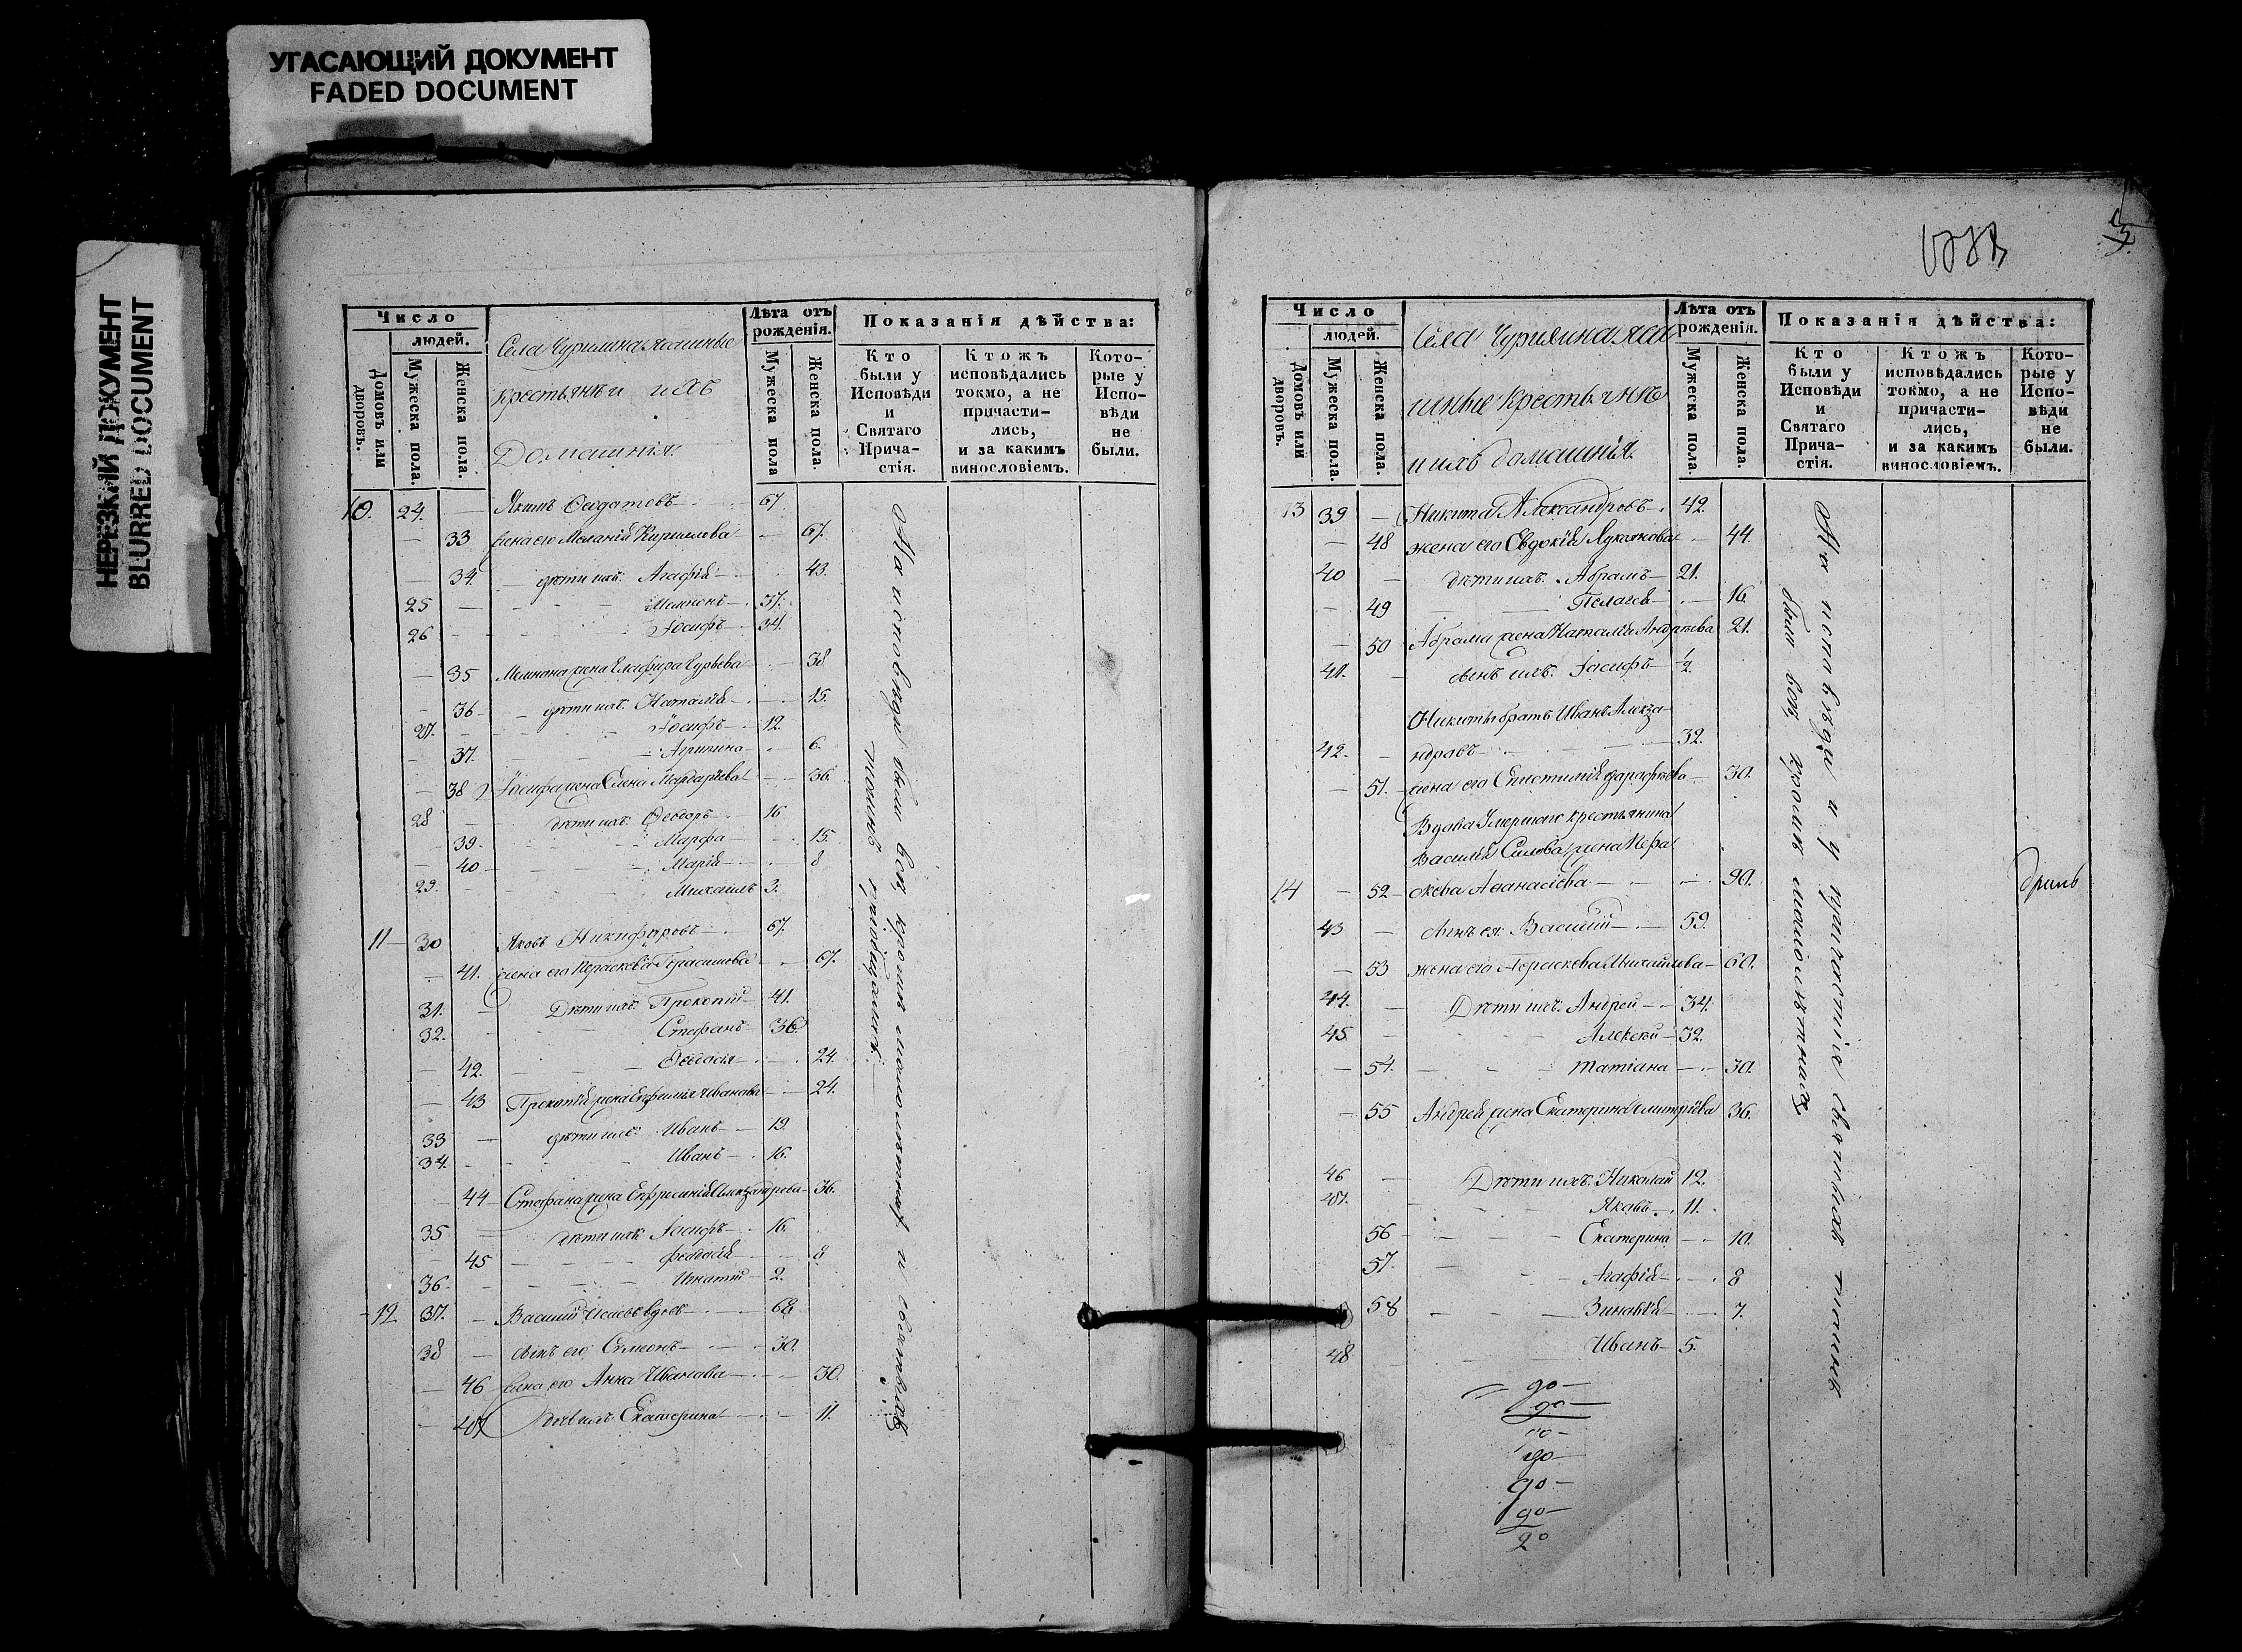 УГАСАЮЩИЙ ДОКУМЕНТ
FADED DOCUMENT
НЕРЕЗКИЙ ДОКУМЕНТ
BLURRED DOCUMENT
Число
людей.
Домовъ или дворовъ.
Мужеска пола.
Женска пола.
Села Чурилина Ясашные
крестьяне и ихъ
Домашнія
Лѣта отъ рожденія.
Мужеска пола
Женска пола.
Показанія дѣйства:
Кто были у Исповѣди и Святаго Прича-стія.
Ктожъ исповѣдались токмо, а не причасти-лись, и за какимъ винословіемъ.
Кото-рые у Испо-вѣди не были.
10. 24. — Якимъ 67
— 33 жена его Меланія Кирилова — 67.
— 34. — дѣти ихъ: Агафія — 43.
25 — Мемнонъ — 37.
26 — Іосифъ — 34.
— 35 Мемнона жена Глафира Гурьева — 38
— 36 — дѣти ихъ: Наталія — 15.
27. — Іосифъ — 12.
— 37. — Агрипина — 6.
— 38 Іосифа жена Елена — 36
28 — дѣти ихъ: Ѳеодоръ — 16
— 39. — Марфа — 15.
— 40 — Марія — 8
29. — Михаилъ 3.
11 — 30 Яковъ Никифоровъ — 67.
— 41. жена его Параскева Герасимова — 67.
31. — Дѣти ихъ: Прокопій — 41.
32. — Стефанъ 36.
— 42. — Ѳеодосія — 24.
— 43 Прокопія жена Евфимія Иванова — 24.
33 — дѣти ихъ: Иванъ — 19
34. — Иванъ — 16.
— 44 Стефана жена Ефросинія Александрова — 36.
35 — дѣти ихъ: Іосифъ — 16.
— 45 — Ѳеодосія — 8
36. — Игнатій — 2.
12 37. — Василій вдовъ — 68
38 — сынъ его Симеонъ — 30.
— 46 жена его Анна Иванова — 30.
— 47 дочь ихъ Екатерина — 11.
На исповѣди были всѣ, кромѣ малолѣтныхъ, и святыхъ
тайнъ пріобщались.
Число
людей.
Домовъ или дворовъ.
Мужеска пола.
Женска пола.
Села Чурилина Яса
шные крестьяне
и ихъ домашнія.
Лѣта отъ рожденія.
Мужеска пола.
Женска пола.
Показанія дѣйства:
Кто были у Исповѣди и Святаго Прича-стія.
Ктожъ исповѣдались токмо, а не причасти-лись, и за какимъ винословіемъ.
Кото-рые у Испо-вѣди не были.
13 39 — Никита Александровъ — 42.
— 48 жена его Евдокія Лукьянова — 44.
40 — дѣти ихъ: Абрамъ — 21.
— 49 — Пелагея — 16.
— 50 Абрама жена Наталія Андреева 21.
41. — сынъ ихъ: Іосифъ — 1/2
Никиты братъ Иванъ Алекса-
42. — ндровъ — 32.
— 51. — жена его Епистимія — 30.
Вдова Умершаго крестьянина
Василія Силова жена Пара
14 — 52 — скева Аѳанасіева — 90.
43 — сынъ ея: Василій — 59.
— 53 жена его Параскева Михайлова — 60.
44. — Дѣти ихъ: Андрей — 34.
45 — Алексѣй — 32.
— 54. — Татіана — 30.
— 55 Андрея жена Екатерина Дмитріева 36.
46 — Дѣти ихъ: Николай 12.
47. — Яковъ — 11.
56 — Екатерина — 10.
57. — Агафія — 8
58 — Зиновія — 7.
48 — Иванъ — 5.
На исповѣди и у причастія святыхъ таинъ
были всѣ, кромѣ малолѣтныхъ
90 —
90 —
90 —
90 —
90 —
20